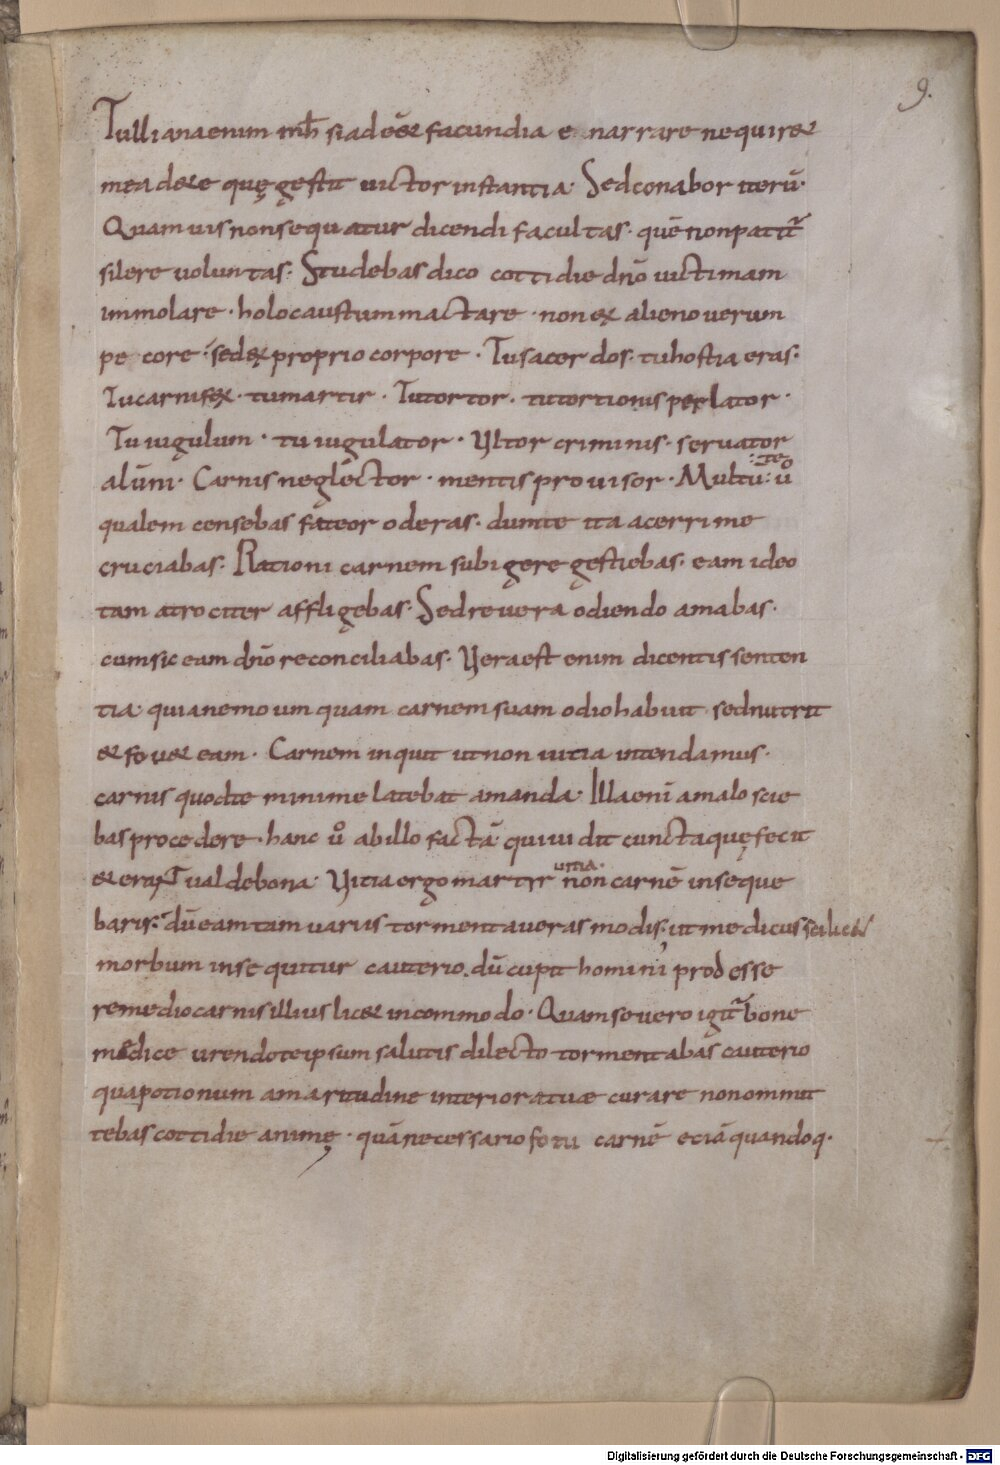 9.
Tulliana enim mħ si adeēt& facundia e narrare nequir&
mea dexe quę gestu uictor instantia· Sed conabor iterū·
Quamuis non sequatur dicendi facultas· quē non patit᷑
silere voluntas· Studebas dico cottidie dn̄o uictimam
immolare · holocaustum mactare · non ex alieno verum
pe core · sed ex proprio corpore · Tu sacerdos· tu hostia eras·
Tu carnifex · tu martir · Tu tortor · tu tortionis perlator ·
Tu iugulum · tu iugulator · Vltor criminis · servator
alūni · Carnis neglector · mentis provisor · Multū te ů
qualem censebas fateor oderas · dum te ita acerrime
cruciabas · Rationi carnem subigere gestiebas · eam ideo
tam atrociter affligebas · Sed revera odiendo amabas ·
cum sic eam dn̄o reconciliabas · Vera est enim dicentis senten
tia· quia nemo umquam carnem suam odio habuit sed nutrit
& fov& eam · Carnem inquit ut non uitia intendamus ·
carnis quod te minime latebat amanda · Illa eni᷑ a malo scie
bas procedere · hanc ů ab illo factā qui uidit cuncta quę fecit
& erant ualde bona · Vitia ergo martyr uitia· non carnē inseque
baris · dū eam tam variis tormentaveras modis · ut medicus scilic&
morbum insequitur cauterio · dū cupit homini prodesse
remedio carnis illius lic& incommodo · Quam severo igit᷑ bone
medice urendo te ipsum salutis dilecto tormentabas cauterio
qua potionum amaritudine interiora tuæ curare non ommit
tebas cottidie animę · quā necessario fotu carnē eciā quandoq·
Digitalisierung gefördert durch die Deutsche Forschungsgemeinschaft - DFG